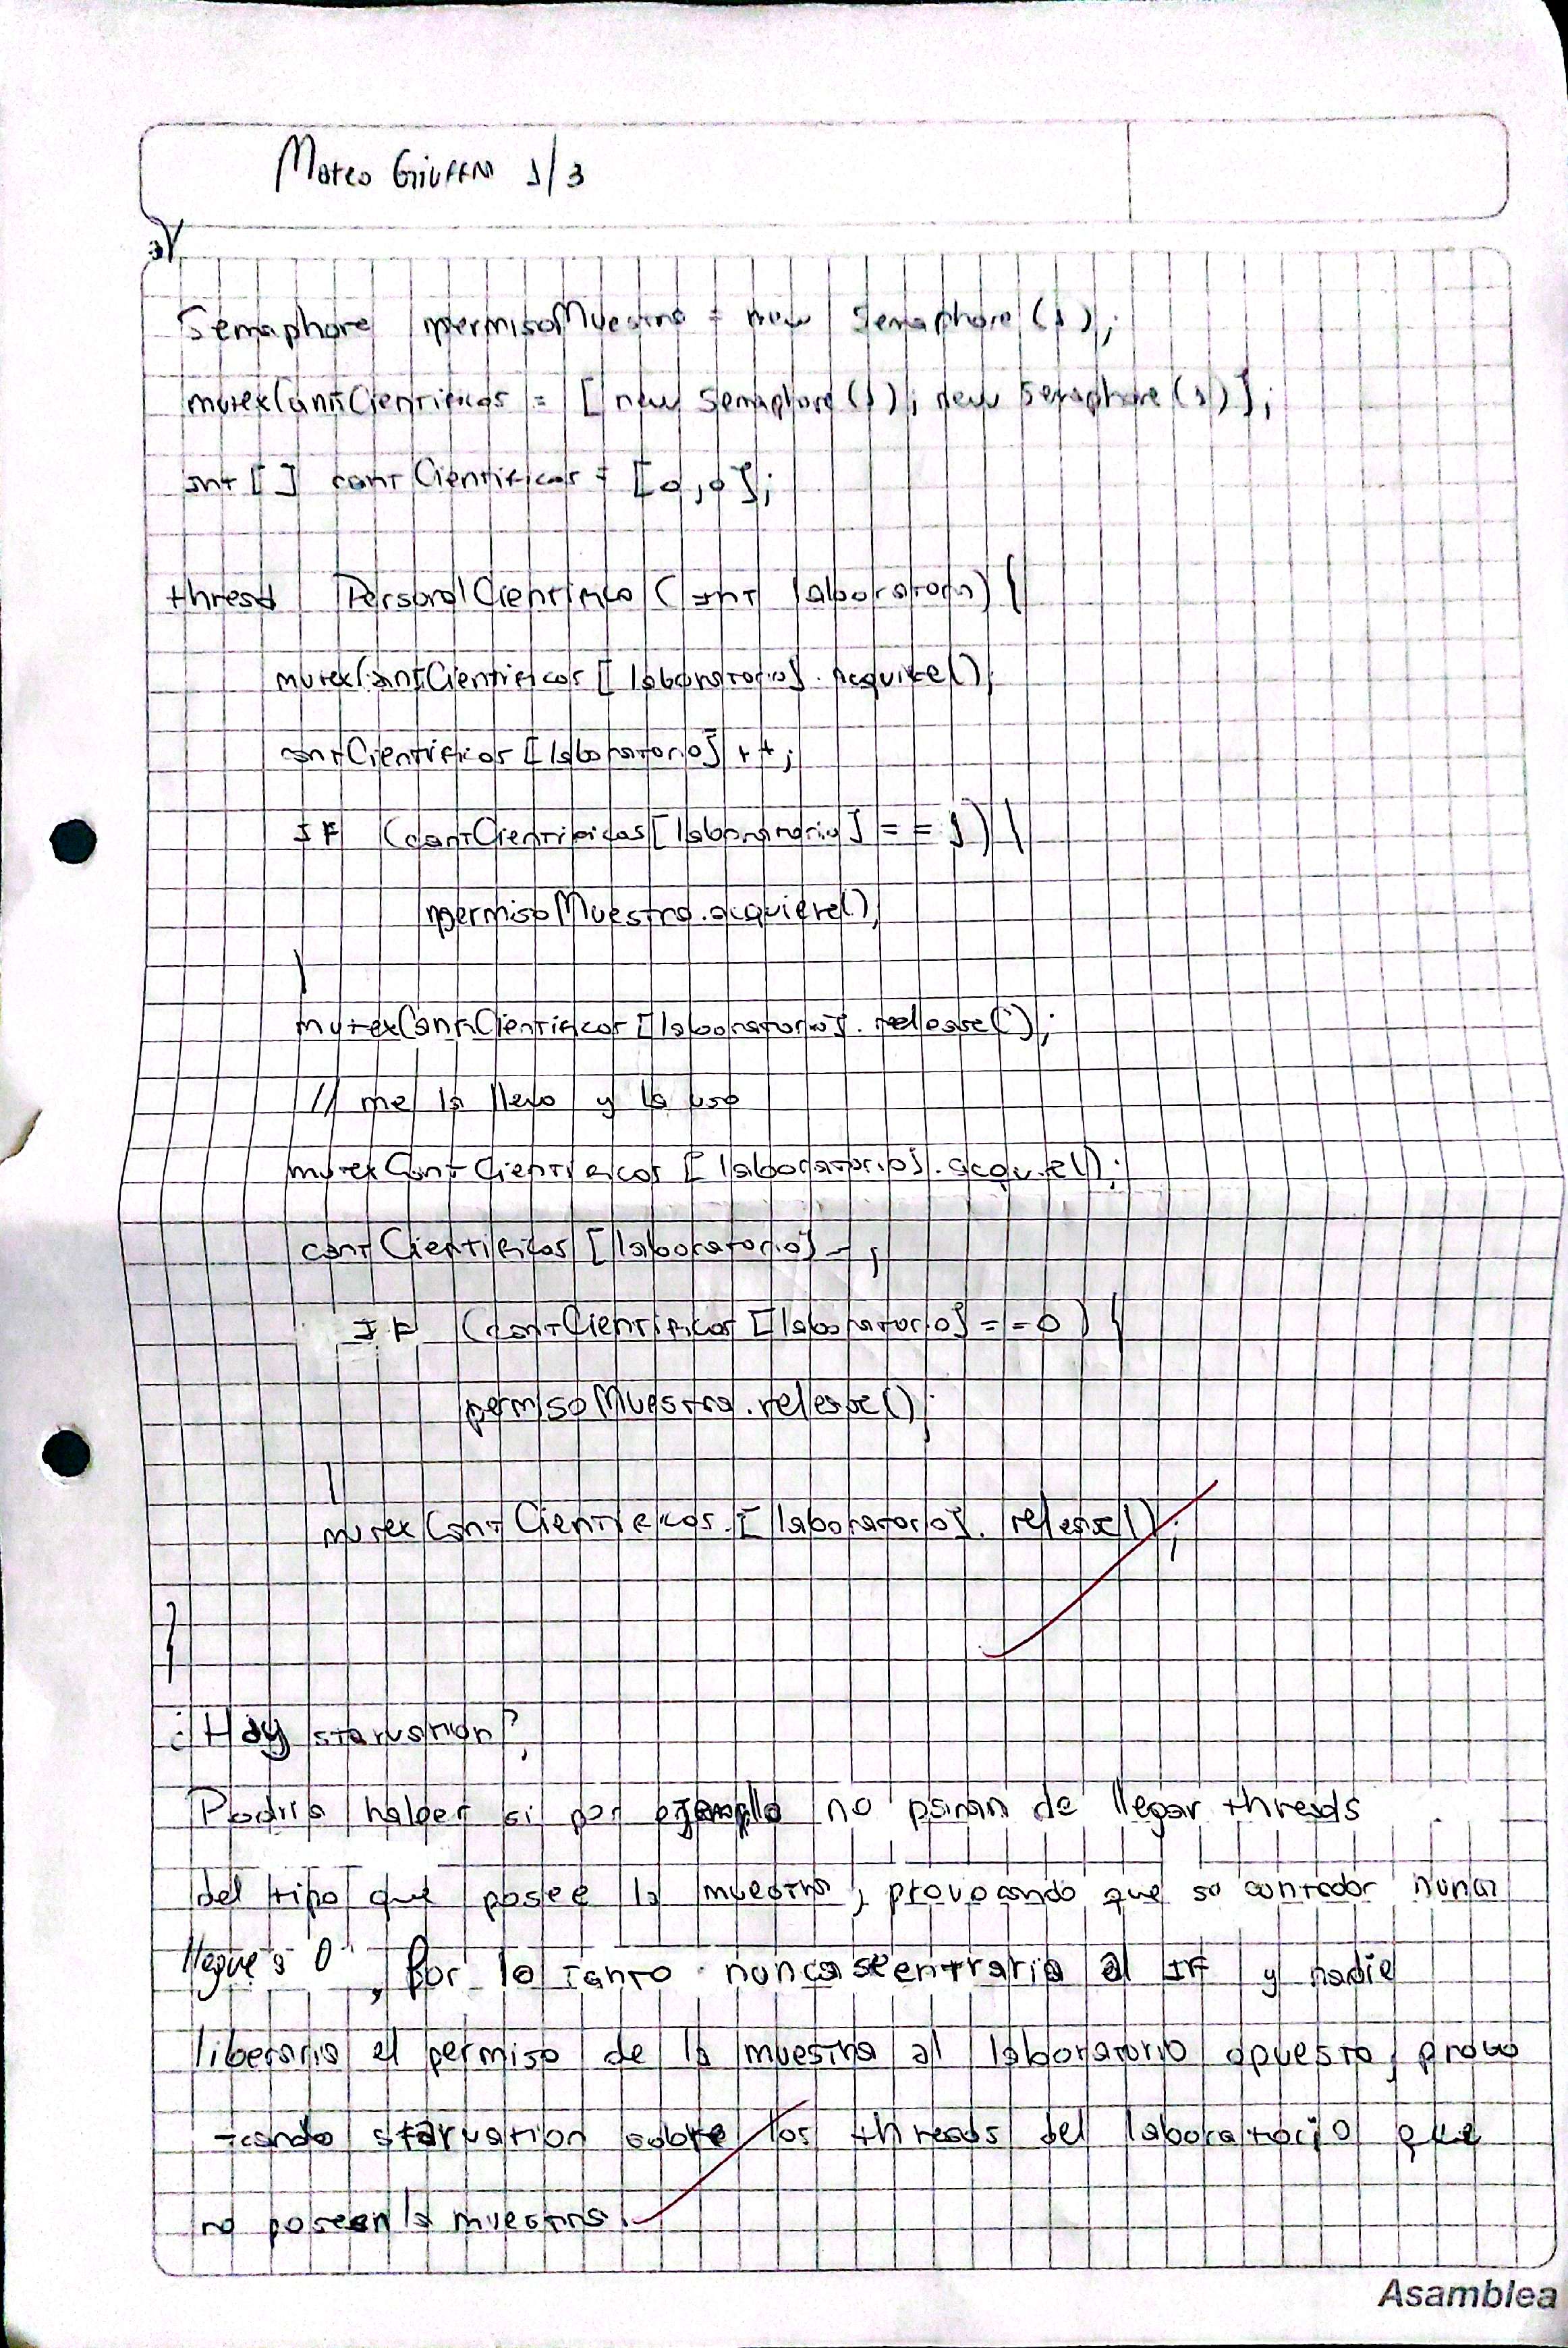 Mateo 1/3
1)
Semaphore permisoMuestra = new Semaphore (1);
mutexCantCientificos = [new Semaphore (1); new Semaphore (1)];
int [] cantCientificos = [0,0];
thread PersonalCientifico (int laboratorio) {
mutexCantCientificos [laboratorio].acquire();
cantCientificos [laboratorio] ++;
IF (cantCientificos [laboratorio] == 1) {
permisoMuestra.acquiere();
}
mutexCantCientificos [laboratorio].release();
// me la llevo y la uso
mutexCantCientificos [laboratorio].acquire();
cantCientificos [laboratorio] --;
IF (cantCientificos [laboratorio] == 0) {
permisoMuestra.release();
}
mutexCantCientificos.[laboratorio].release();
}
¿Hay starvation?
Podria haber si por ejemplo no paran de llegar threads
del tipo que posee la muestra, provocando que su contador nunca
llegue a 0, Por lo tanto nunca se entraria al IF y nadie
liberaria el permiso de la muestra al laboratorio opuesto, provo
-cando starvation sobre los threads del laboratorio que
no poseen la muestra.
Asamblea